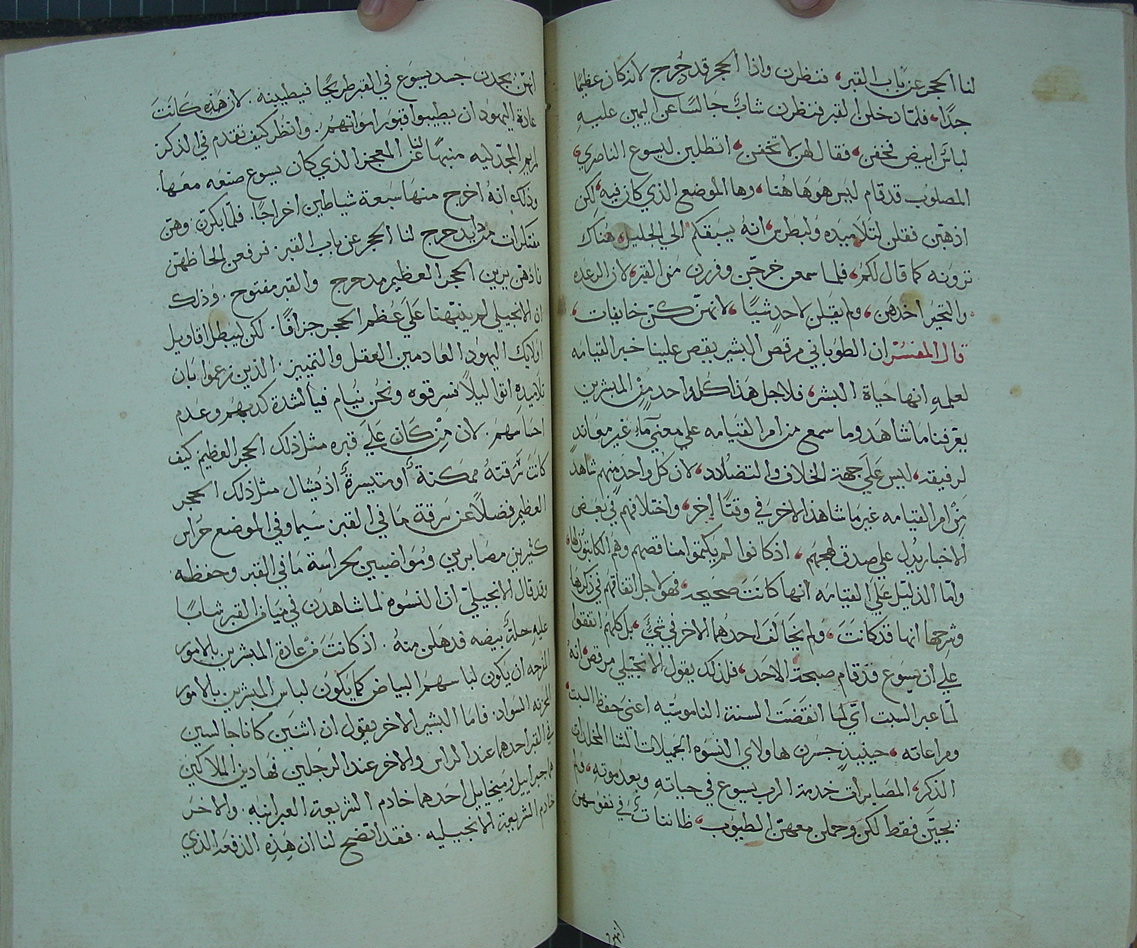 لنا الحجر عن باب القبر، فنظرن واذا الحجر قد دُحرج لانه كان عظيمًا
جدًا، فلما دخلن القبر نظرن شابًا جالسًا عن اليمين عليه
لباسٌ ابيض فخفن، فقال لهن لا تخفن، انتظلبن ليسوع الناصري
المصلوب قد قام ليس هو هاهنا، وها الموضع الذي كان فيه، لكن
اذهبن فقلن لتلاميذه ولبطرس انه يسبقكم الي الجليل، هناك
ترونه كما قال لكم، فلما سمعن خرجن وفررن من القبر، لان الرعده
والتحير اخذهن، ولم يقلن لاحدٍ شيًا، لانهن كن خايفات،
قال المفسر ان الطوباني مرقص البشير يقص علينا خبر القيامه
لعلمه انها حياة البشر، فلاجل هذا كله احد من المبشرين
يعرفنا ما شاهد وما سمع من امر القيامه علي معني ما، غير معاند
لرفيقه، ليس علي جهة الخلاف والتضادد، لان كل واحد منهم شاهد
من امر القيامه غير ما شاهد الاخر في وقتًا اخر، واختلافهم في بعض
الاخبار يدل علي صدق لهجتهم، اذ كانوا لم يكتموا مناقصهم وهم الكاتبون لها،
واما الدليل علي القيامه انها كانت صحيحه، فهو اجل اتفاقهم في ذكرها
وشرحها انها قد كانت، ولم يخالف احدهما الاخر في شيء، بل كلهم اتفقوا
علي ان يسوع قد قام صبحة الاحد، فلذلك يقول الانجيلي مرقص انه
لما عبر السبت اي لما انقضت السنة الناموسيه اعني حفظ السبت
ومراعاته، حينيذٍ جسرن هاولاي النسوه الجميلات الثنا المخلدات
الذكر، المصابرات خدمة الرب يسوع في حياته وبعد موته، ولم
يجين فقط لكن وحملن معهن الطيوب، ظانناتٌ في نفوسهن
انهن
انهن يجدن جسد يسوع في القبر طريحًا فيطيبنه، لان هذه كانت
عادة اليهود ان يطيبوا قبور امواتهم، وانظر كيف تقدم في الذكر
مريم المجدليه منبهًا لنا عن المعجز الذي كان يسوع صنعه معها،
وذلك انه اخرج منها سبعة شياطين اخراجًا، فلما بكرن وهن
مفتكرات من يدحرج لنا الحجر عن باب القبر، فرفعن الحاظهن
فاذ هن يرين الحجر العظيم مدحرج والقبر مفتوح، وذلك
ان الانجيلي لم ينبهنا علي عظم الحجر جزافًا، لكن ليبطل اقاويل
اولايك اليهود العادمين العقل والتمييز، الذين زعموا بان
تلاميذه اتوا ليلًا فسرقوه ونحن نيام فيا لشدة كذبهم وعدم
احتامهم، لان من كان علي قبره مثل ذلك الحجر العظيم كيف
كانت سرقته ممكنة او متيسرة اذ يشال مثل ذلك الحجر
العظيم فضلًا عن سرقة ما في القبر سيما وفي الموضع حراس
كثيرين مصابرين ومواضبين بحراسة ما في القبر وحفظه
وقد قال الانجيلي ان النسوه لما شاهدن في القبر شابًا
عليه حلة بيضه قد هلن منه، اذ كانت من عادة المبشرين بالامور
الفرحه ان يكون لباسهم البياض كما يكون لباس المبشرين بالامور
المحزنه السواد، فاما البشير الاخر يقول ان اثنين كانا جالسين
في القبر احدهما عند الراس والاخر عند الرجلين فهاذين الملاكين
هما جبراييل وميخاييل احدهما خادم الشريعة العبرانيه والاخر
خادم الشريعة الانجيليه، فقد اتضح لنا ان هذه الدفعه الذي